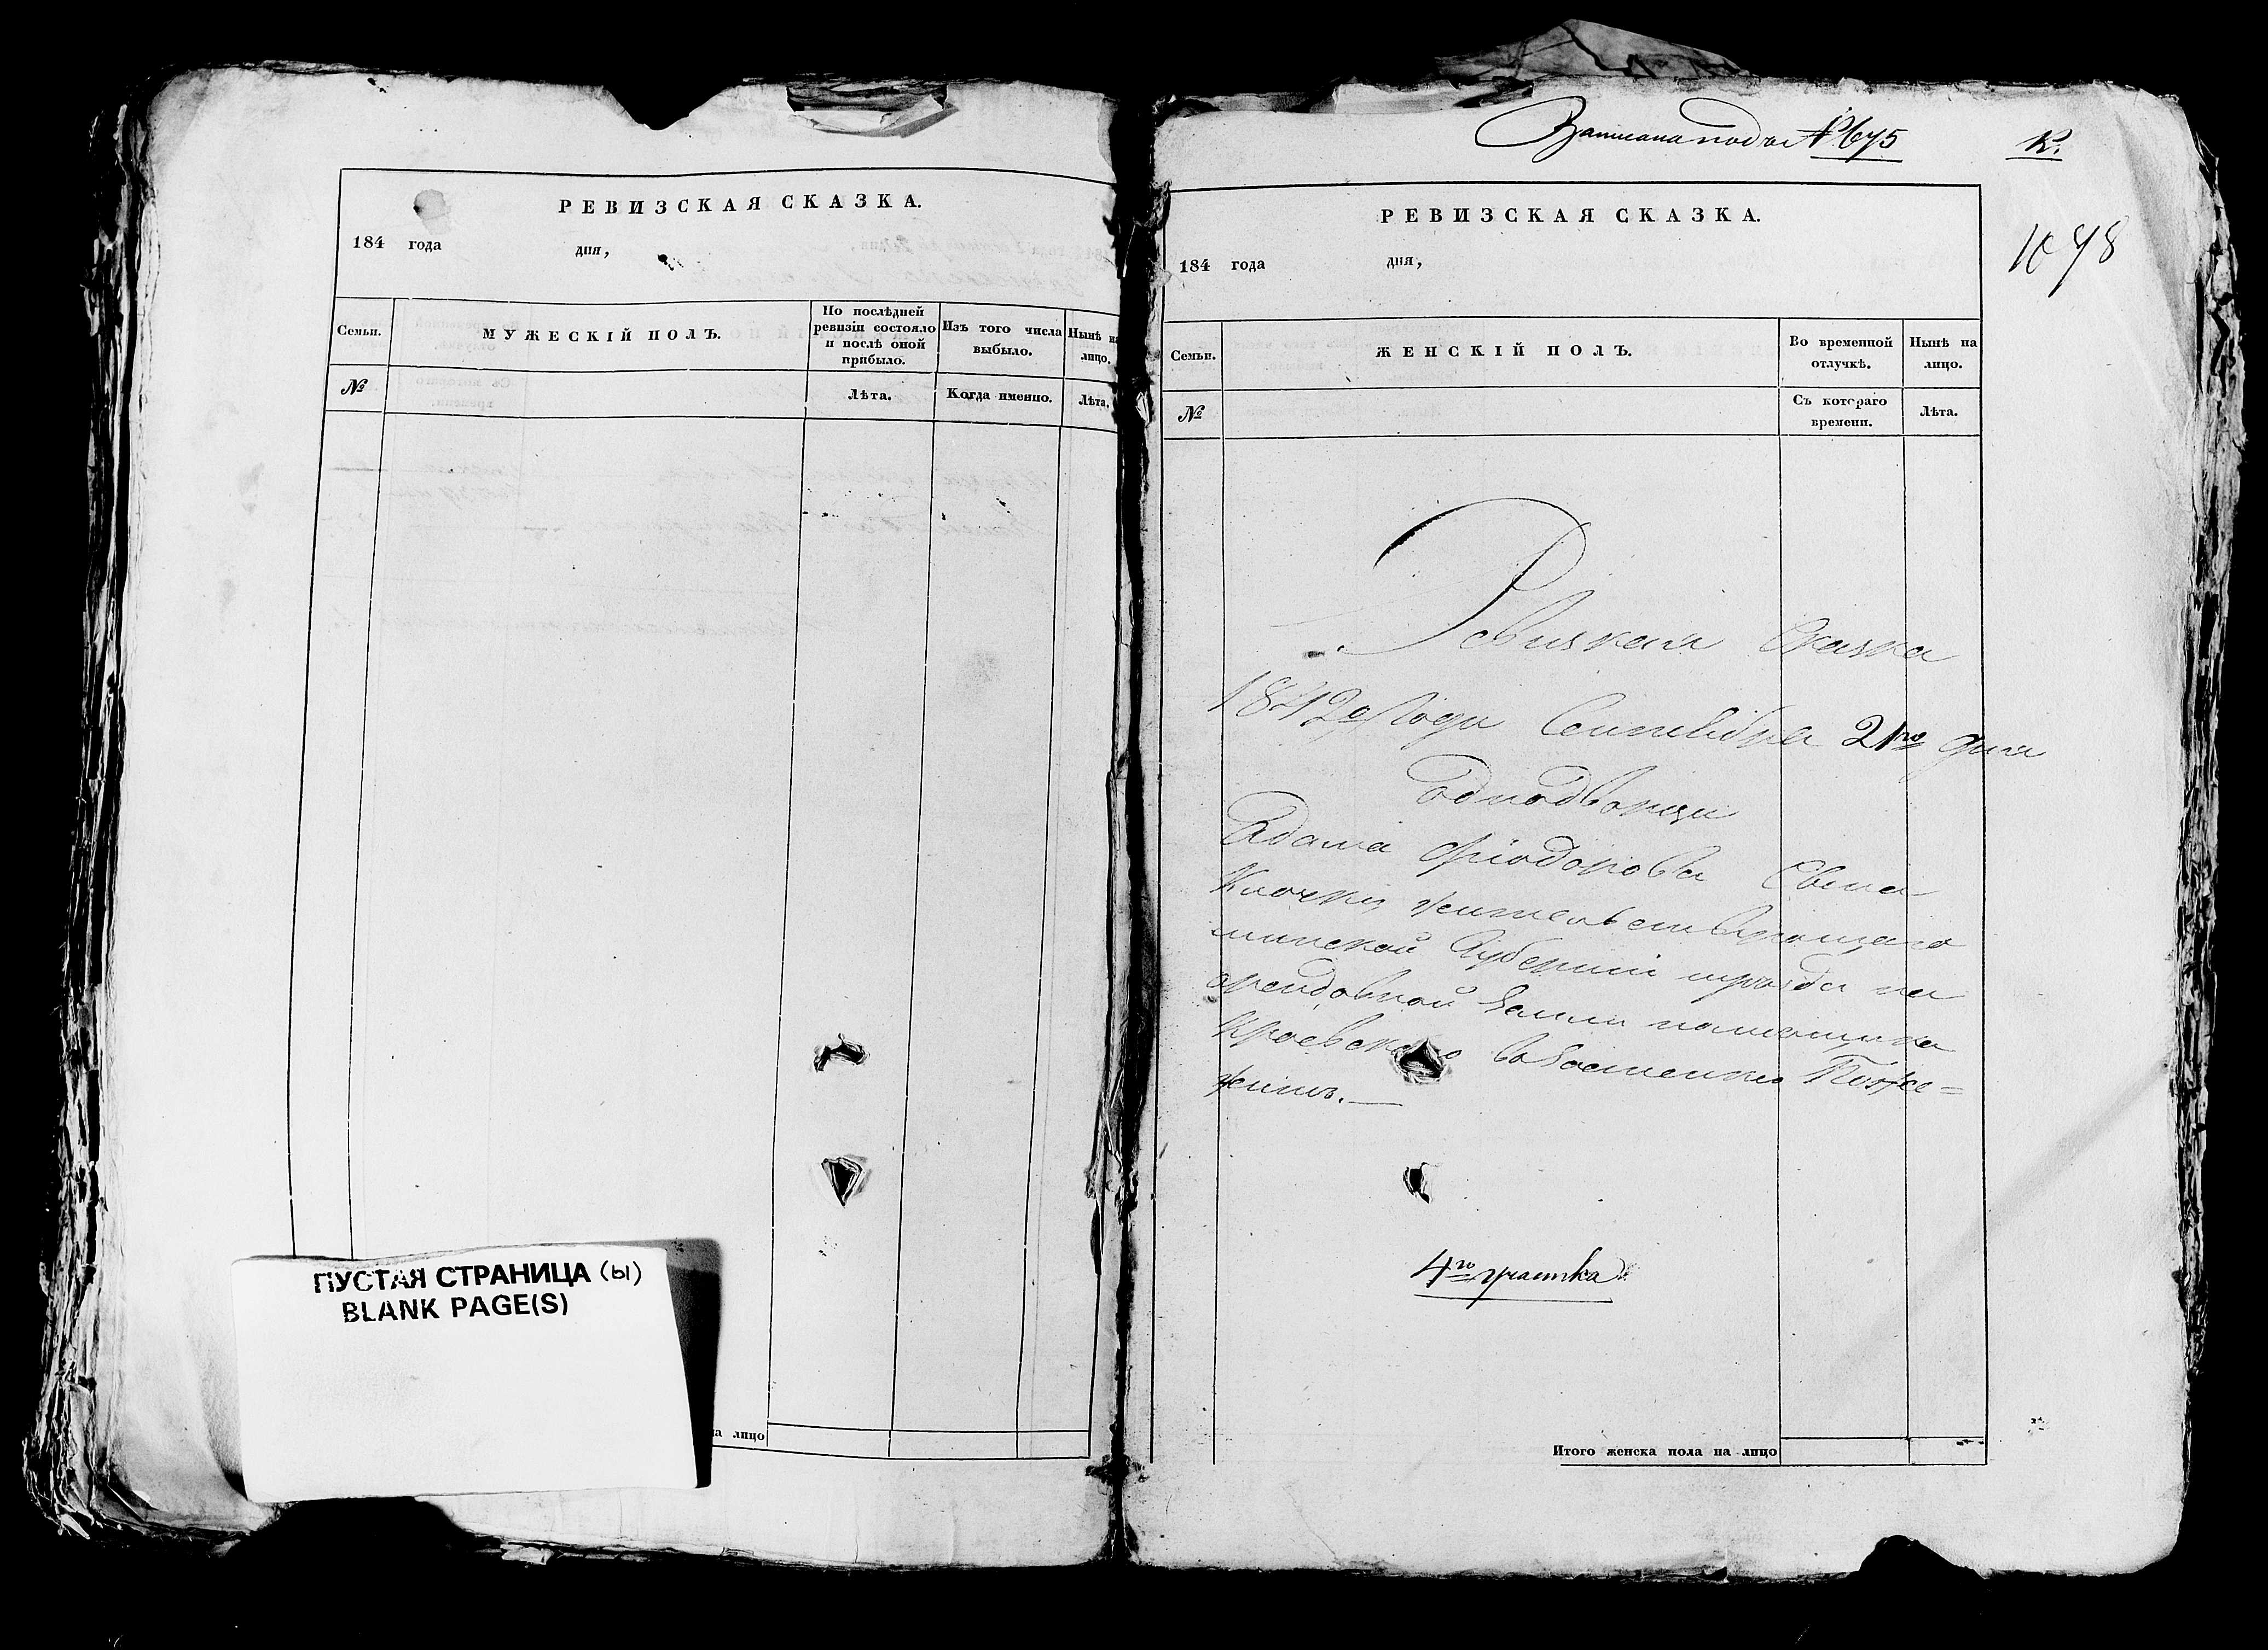 РЕВИЗСКАЯ СКАЗКА.
184 года дня,
Семьи. МУЖЕСКІЙ ПОЛЪ. По послѣдней ревизіи состояло и послѣ оной прибыло. Изъ того числа выбыло. Нынѣ на лицо.
№ Лѣта. Когда именно. Лѣта.
ПУСТАЯ СТРАНИЦА (ы)
BLANK PAGE(S)
на лицо
Записана подъ № 675
К.
РЕВИЗСКАЯ СКАЗКА.
184 года дня,
Семьи. ЖЕНСКІЙ ПОЛЪ. Во временной отлучкѣ. Нынѣ на лицо.
№ Съ котораго времени. Лѣта.
Ревизкая Сказка
Года Сентября 21го дня
Однодворца
Адама Фіодорова Сына
жительствующаго
минской Губерніи на
помещика
въ Застенке
4го участка
Итого женска пола на лицо